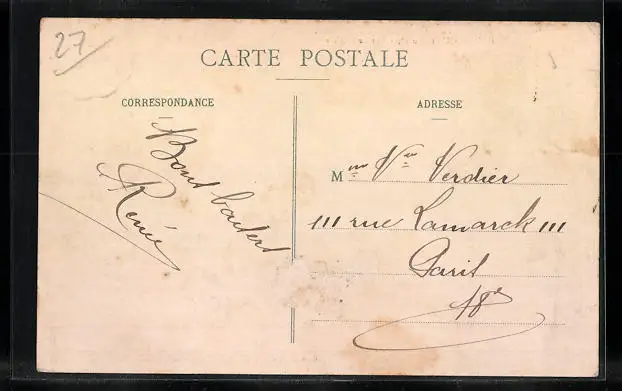 27
CARTE POSTALE
CORRESPONDANCE
ADRESSE
Bons baisers
Renée
Mme Vve Verdier
111 rue Lamarck 111
Paris
18e